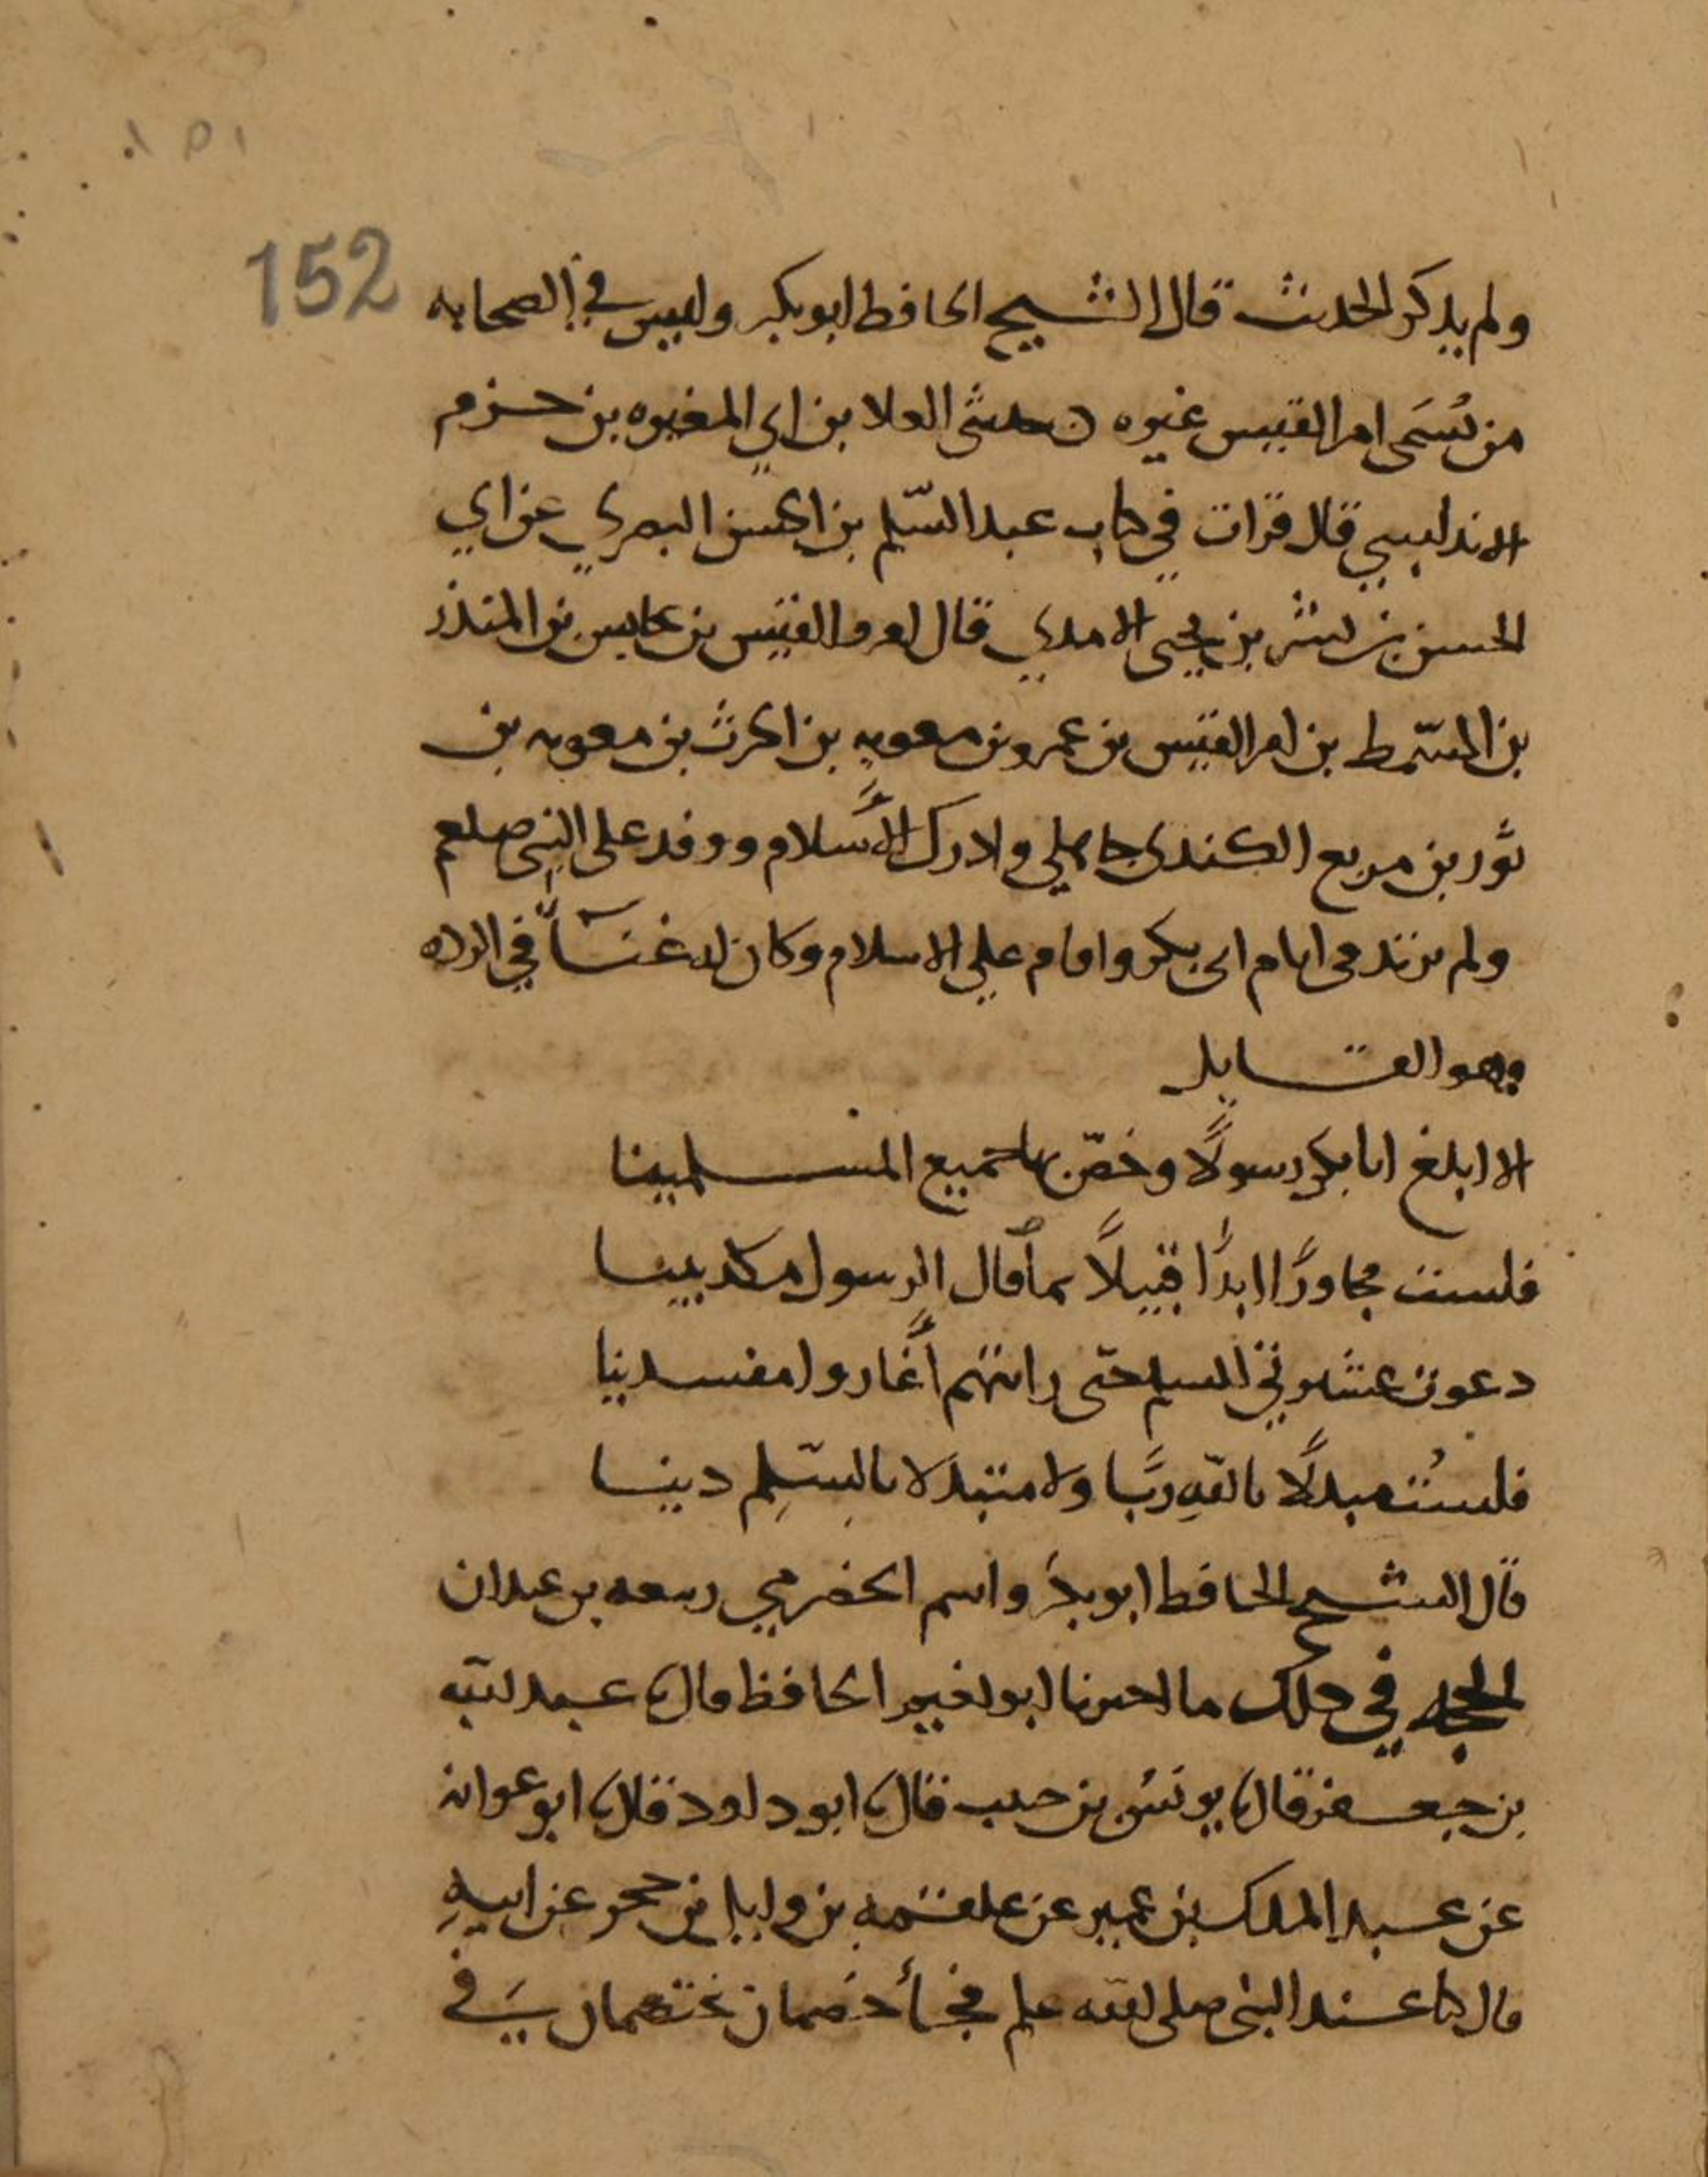 ١٥١
152
ولم يذكر الحديث قال الشيخ الحافظ ابو بكر وليس في الصحابه
من يُسَمى امرا القيس غيره حدثني العلا بن ابي المغيره بن حزم
الاندلسي قال قرات في كتاب عبد السّلم بن الحسن البصري عن ابي
الحسن بن بشر بن يحيى الامدي قال امرو القيس بن عابس بن المنذر
بن السّمط بن امرا القيس بن عمرو بن معويه بن الحرث بن معويه بن
ثور بن مريع الكندي جاهلي وادرك الاسلام ووفد على النبي صلعم
ولم يرتد في ايام ابي بكر واقام علي الاسلام وكان له غنآءً في الرده
وهو القايل
الا ابلغ ابا بكر رسولاً وخصّ بها جميع المسلمينا
فلست مجاورًا ابدًا قبيلاً بما قال الرسول مكذبينا
دعوت عشيرتي للسلم حتى رايتهم أغاروا مفسدينا
فلستُ مبدلاً بالله ربًّا ولا متبدلا بالسّلِم دينا
قال الشيخ الحافظ ابو بكر واسم الحضرمي ربيعه بن عبدان
الحجه في ذلك ما اخبرنا ابو نعيم الحافظ قال ثنا عبد الله
بن جعفر قال ثنا يونس بن حبيب قال ثنا ابو داود قال ثنا ابو عوانه
عن عبد الملك بن عمير عن علقمه بن وايل بن حجر عن ابيهِ
قال كنا عند النبي صلى الله علم فجأ خصمان يختصمان في